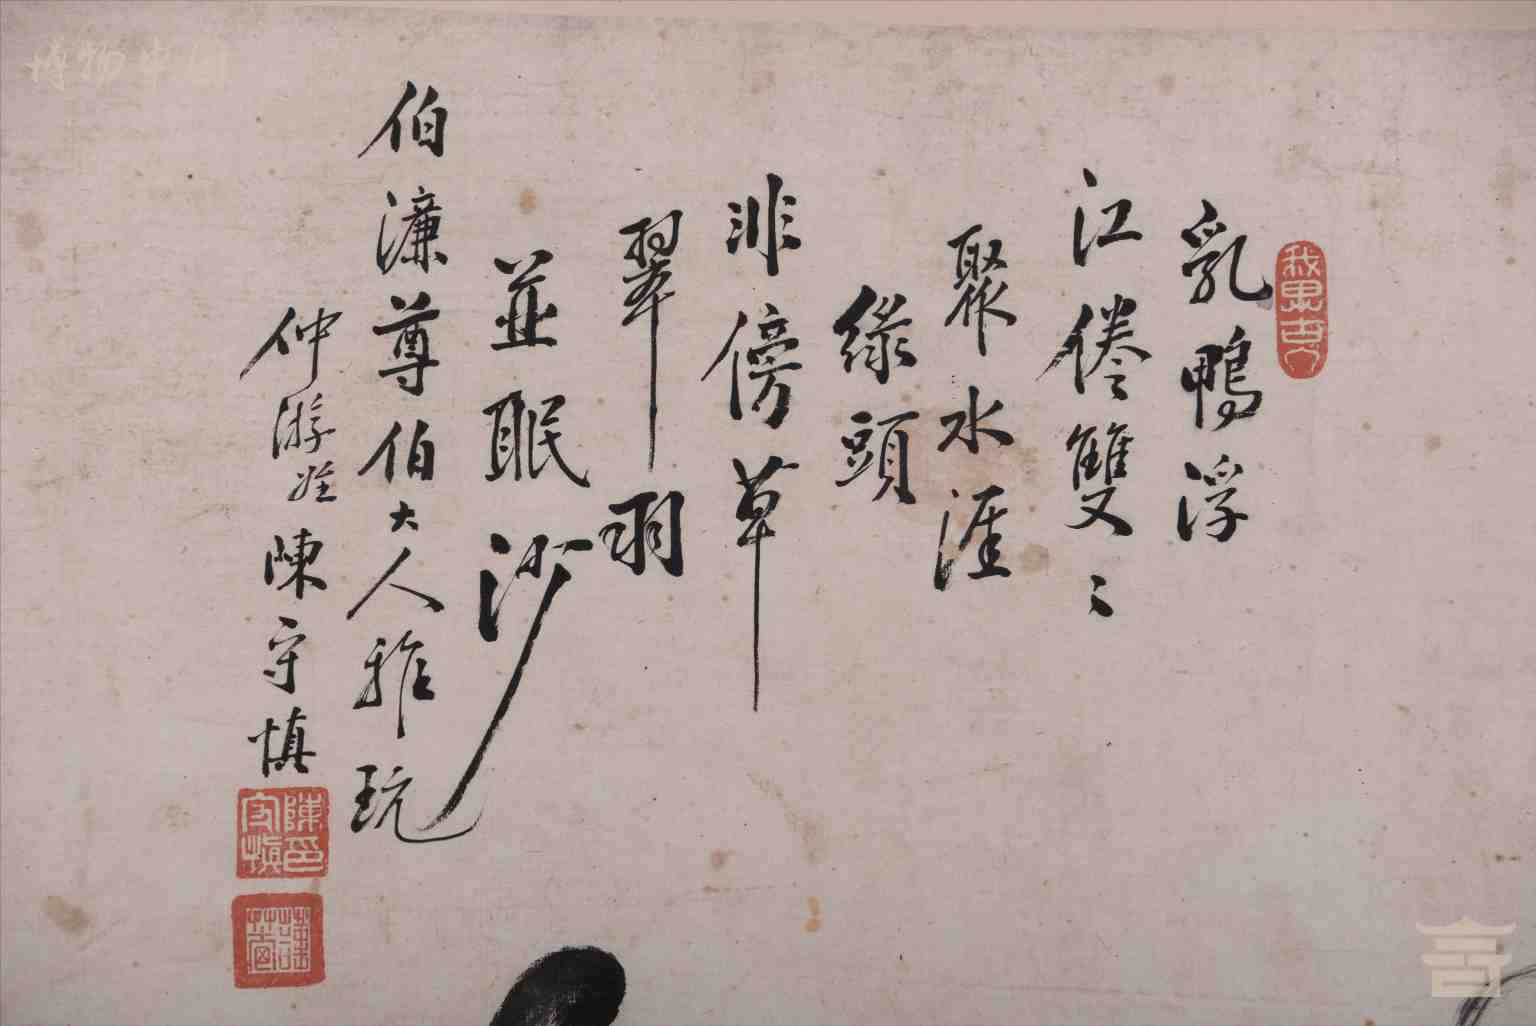 乳鴨浮
江倦雙〻
聚水涯
綠頭
非傍草
翠羽
並眠沙
伯濂尊伯大人雅玩
仲游姪陳守慎
陳印守慎
博物中国